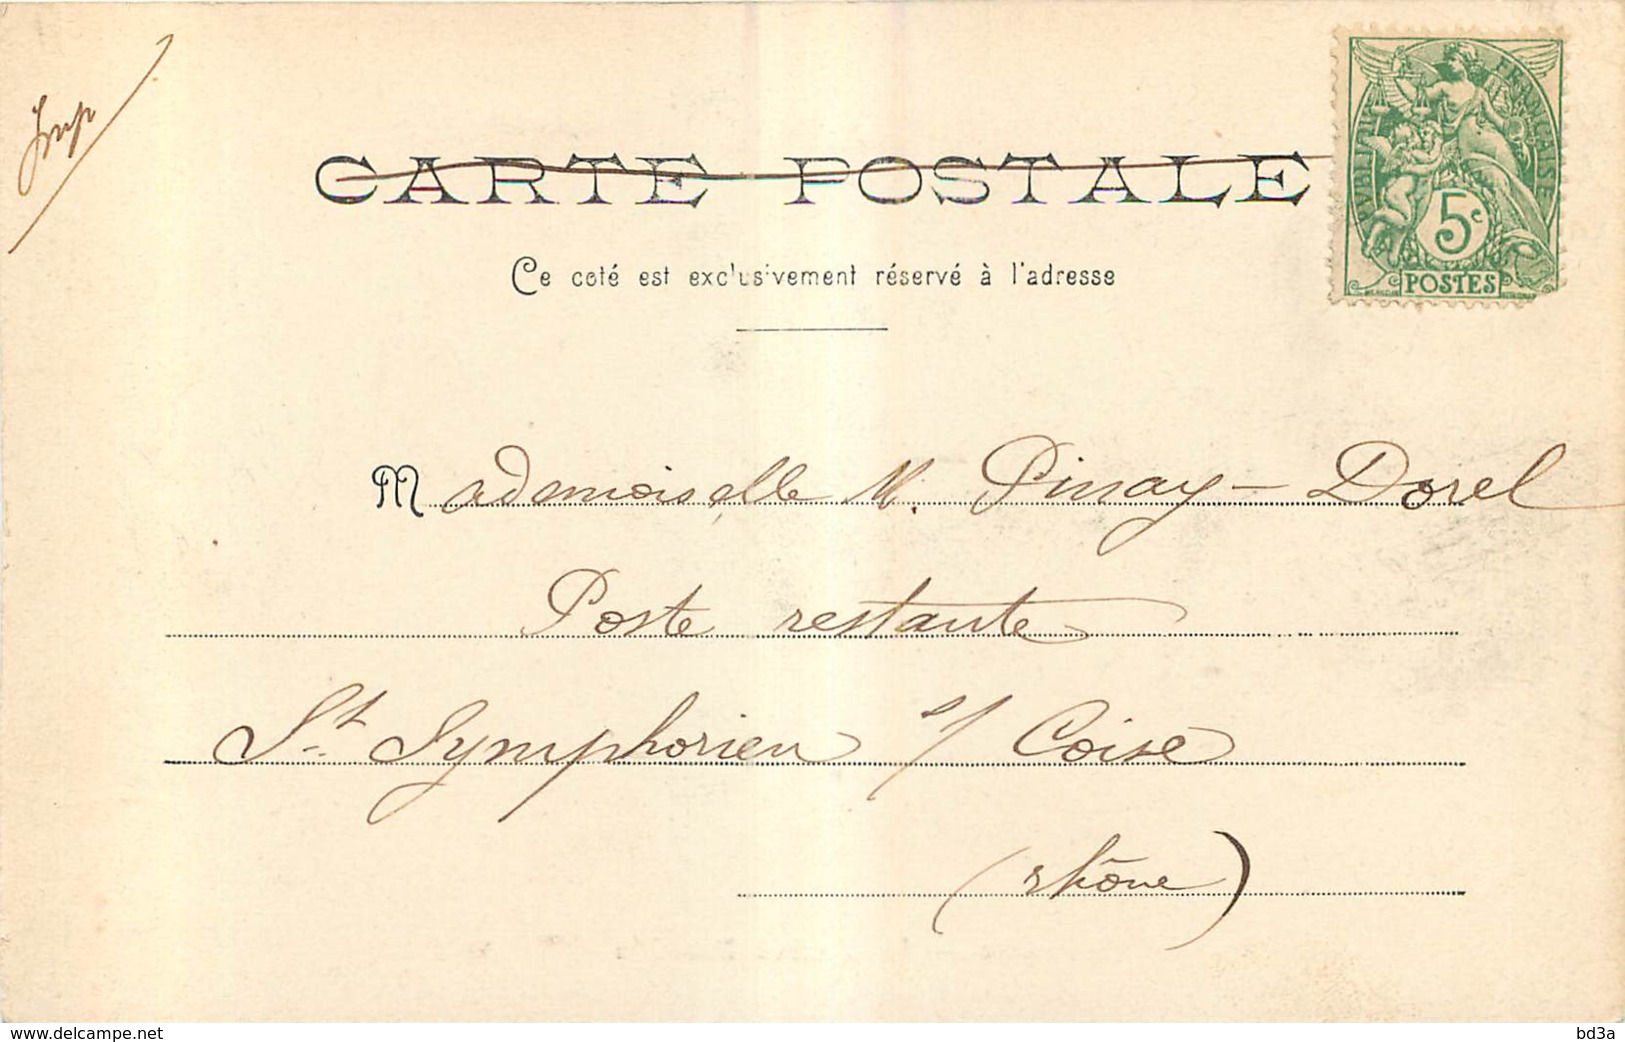 Imp
CARTE POSTALE
Ce coté est exclusivement réservé à l'adresse
RÉPUBLIQUE FRANÇAISE
5c
POSTES
Mademoiselle M. Pinay-Dorel
Poste restante
St. Symphorien s/ Coise
(rhône)
www.delcampe.net
bd3a